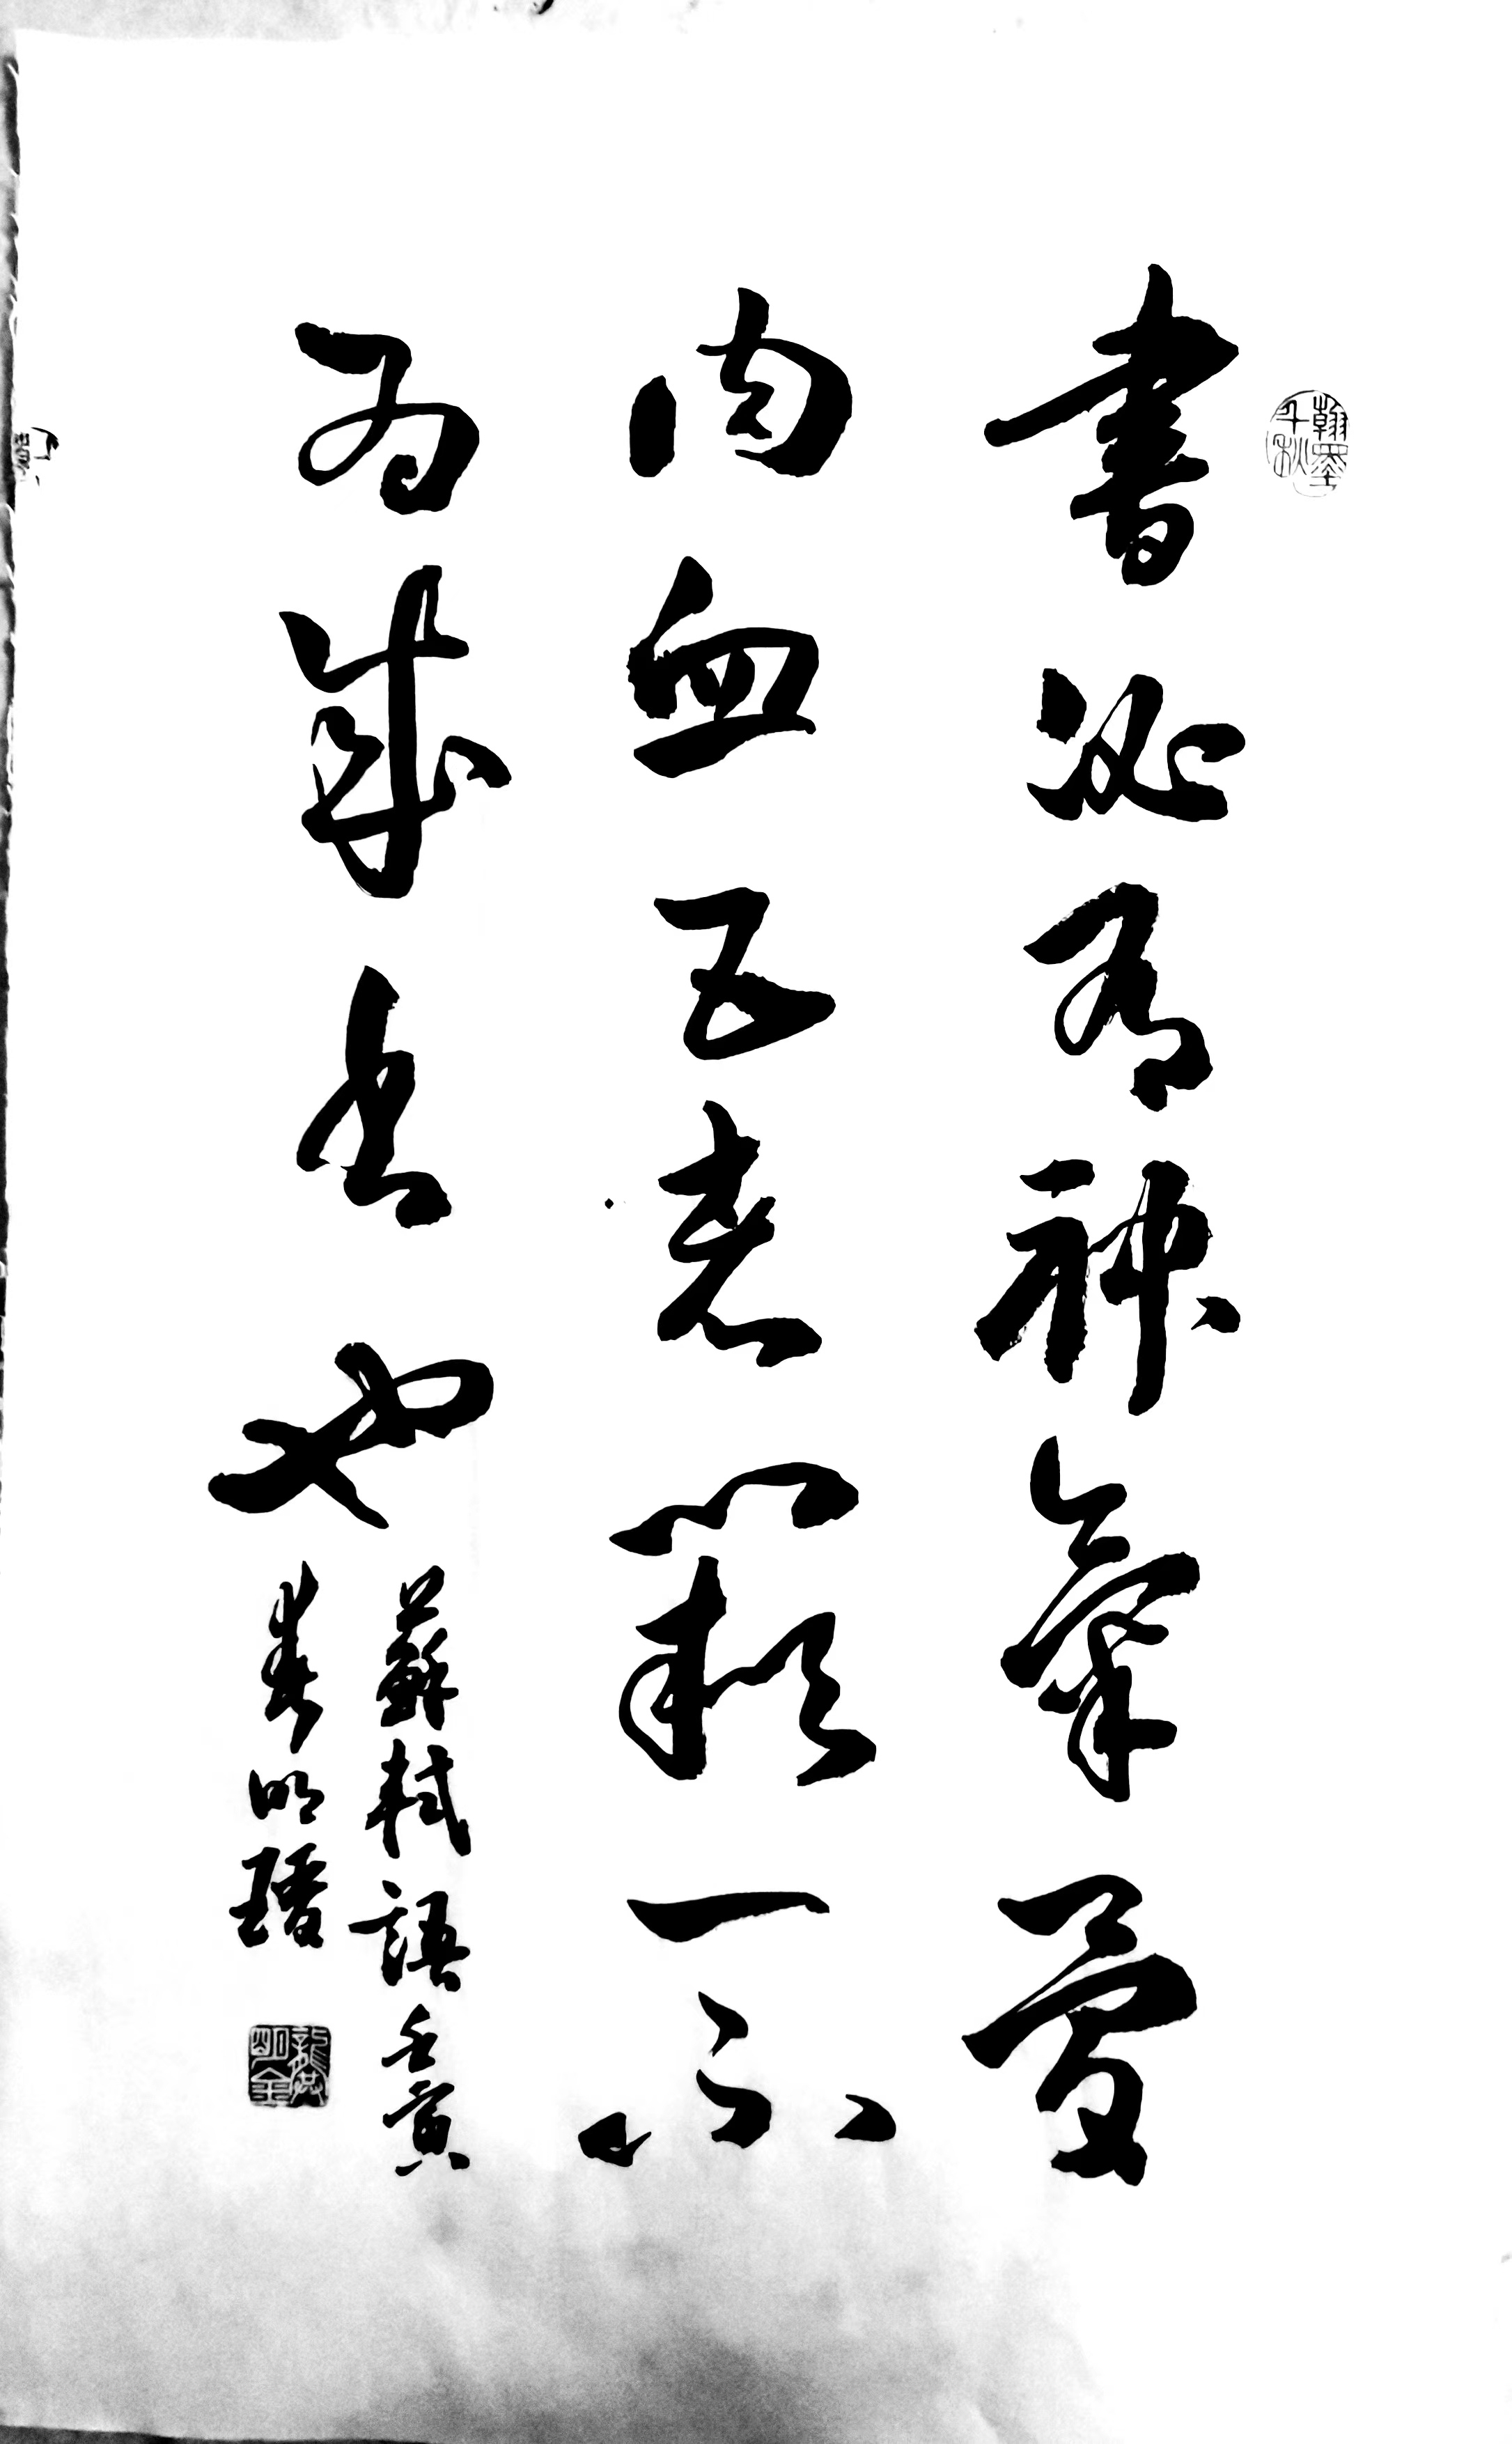 翰墨
千秋
書必有神氣骨
肉血五者闕一不
為成書也
蘇軾語壬寅
春明